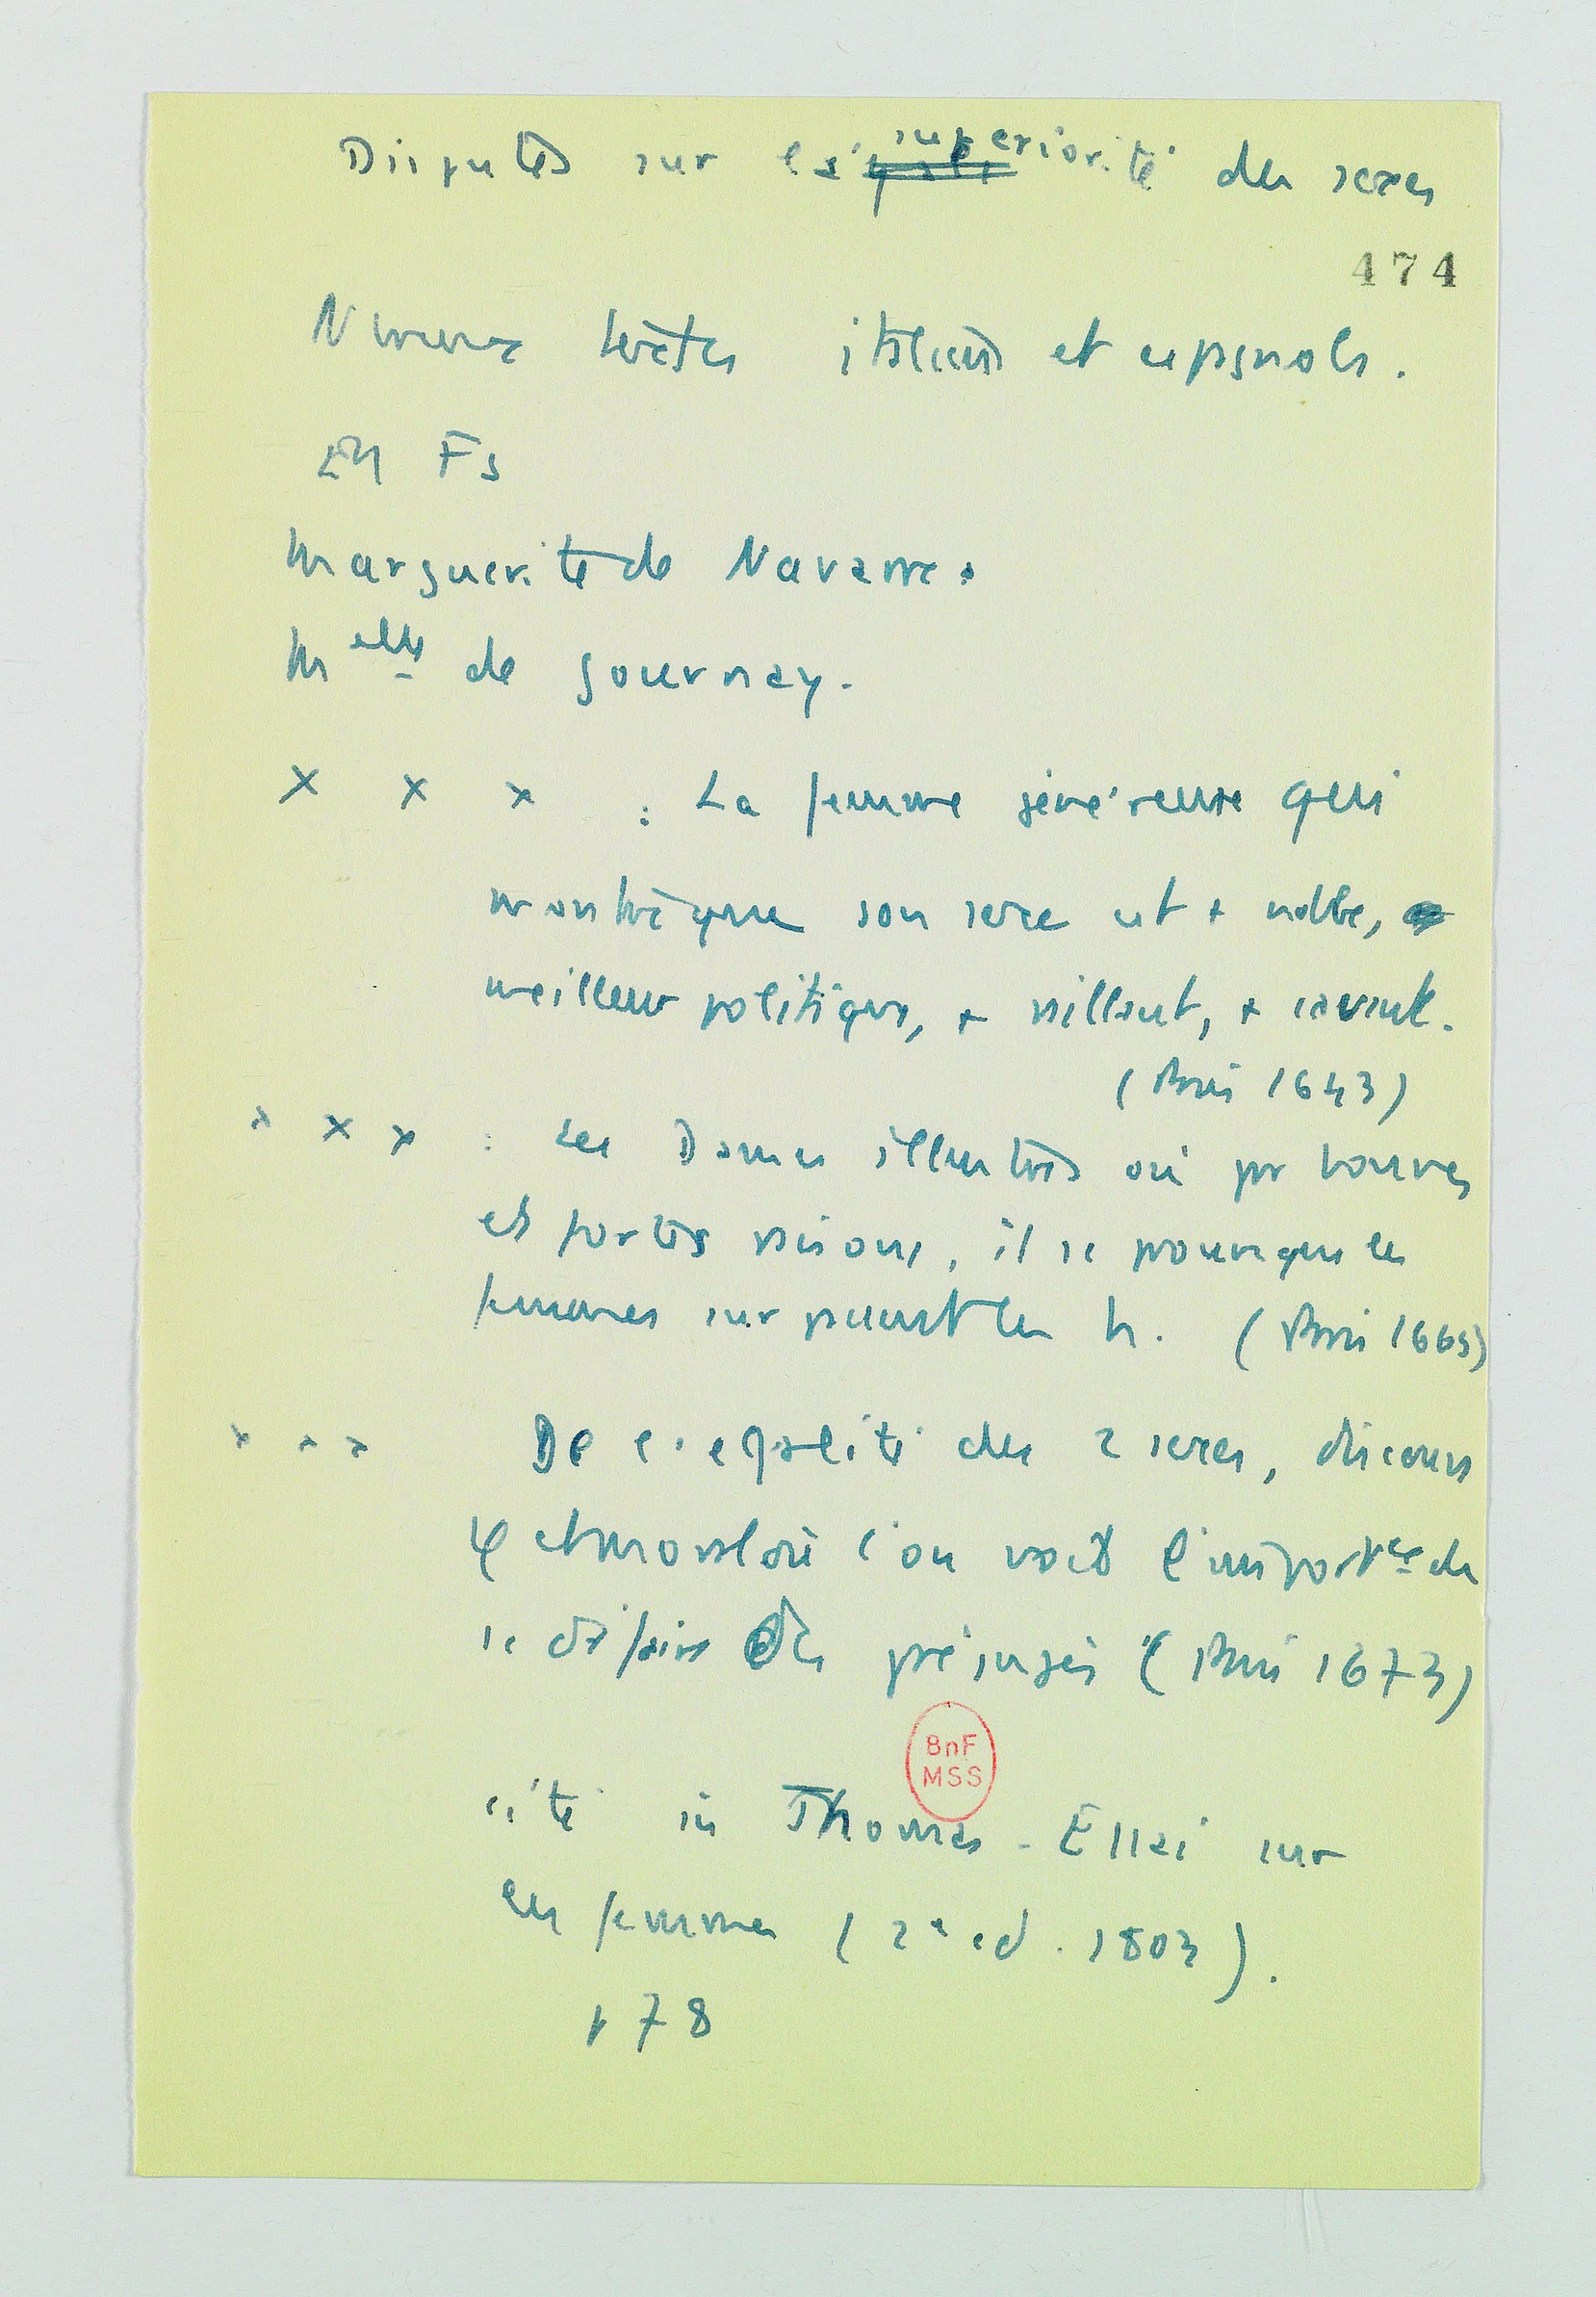 Disputes sur la supériorité des sexes
474
Nbreux textes italiens et espagnols.
En Fs
Marguerite de Navarre.
Melle de Gournay.
x x x : La femme généreuse qui
montre que son sexe est + noble,
meilleur politique, + vaillant, + savant.
(Paris 1643)
x x x : Les Dames illustres où par bonnes
et fortes raisons, il se prouve que les
femmes surpassent les h. (Paris 1665)
x x x De l'egalité des 2 sexes, discours
φ et moral où l'on voit l'importce de
se défaire des préjugés (Paris 1673)
BnF
MSS
cité in Thomas - Essai sur
les femmes (2e ed. 1803).
p 78